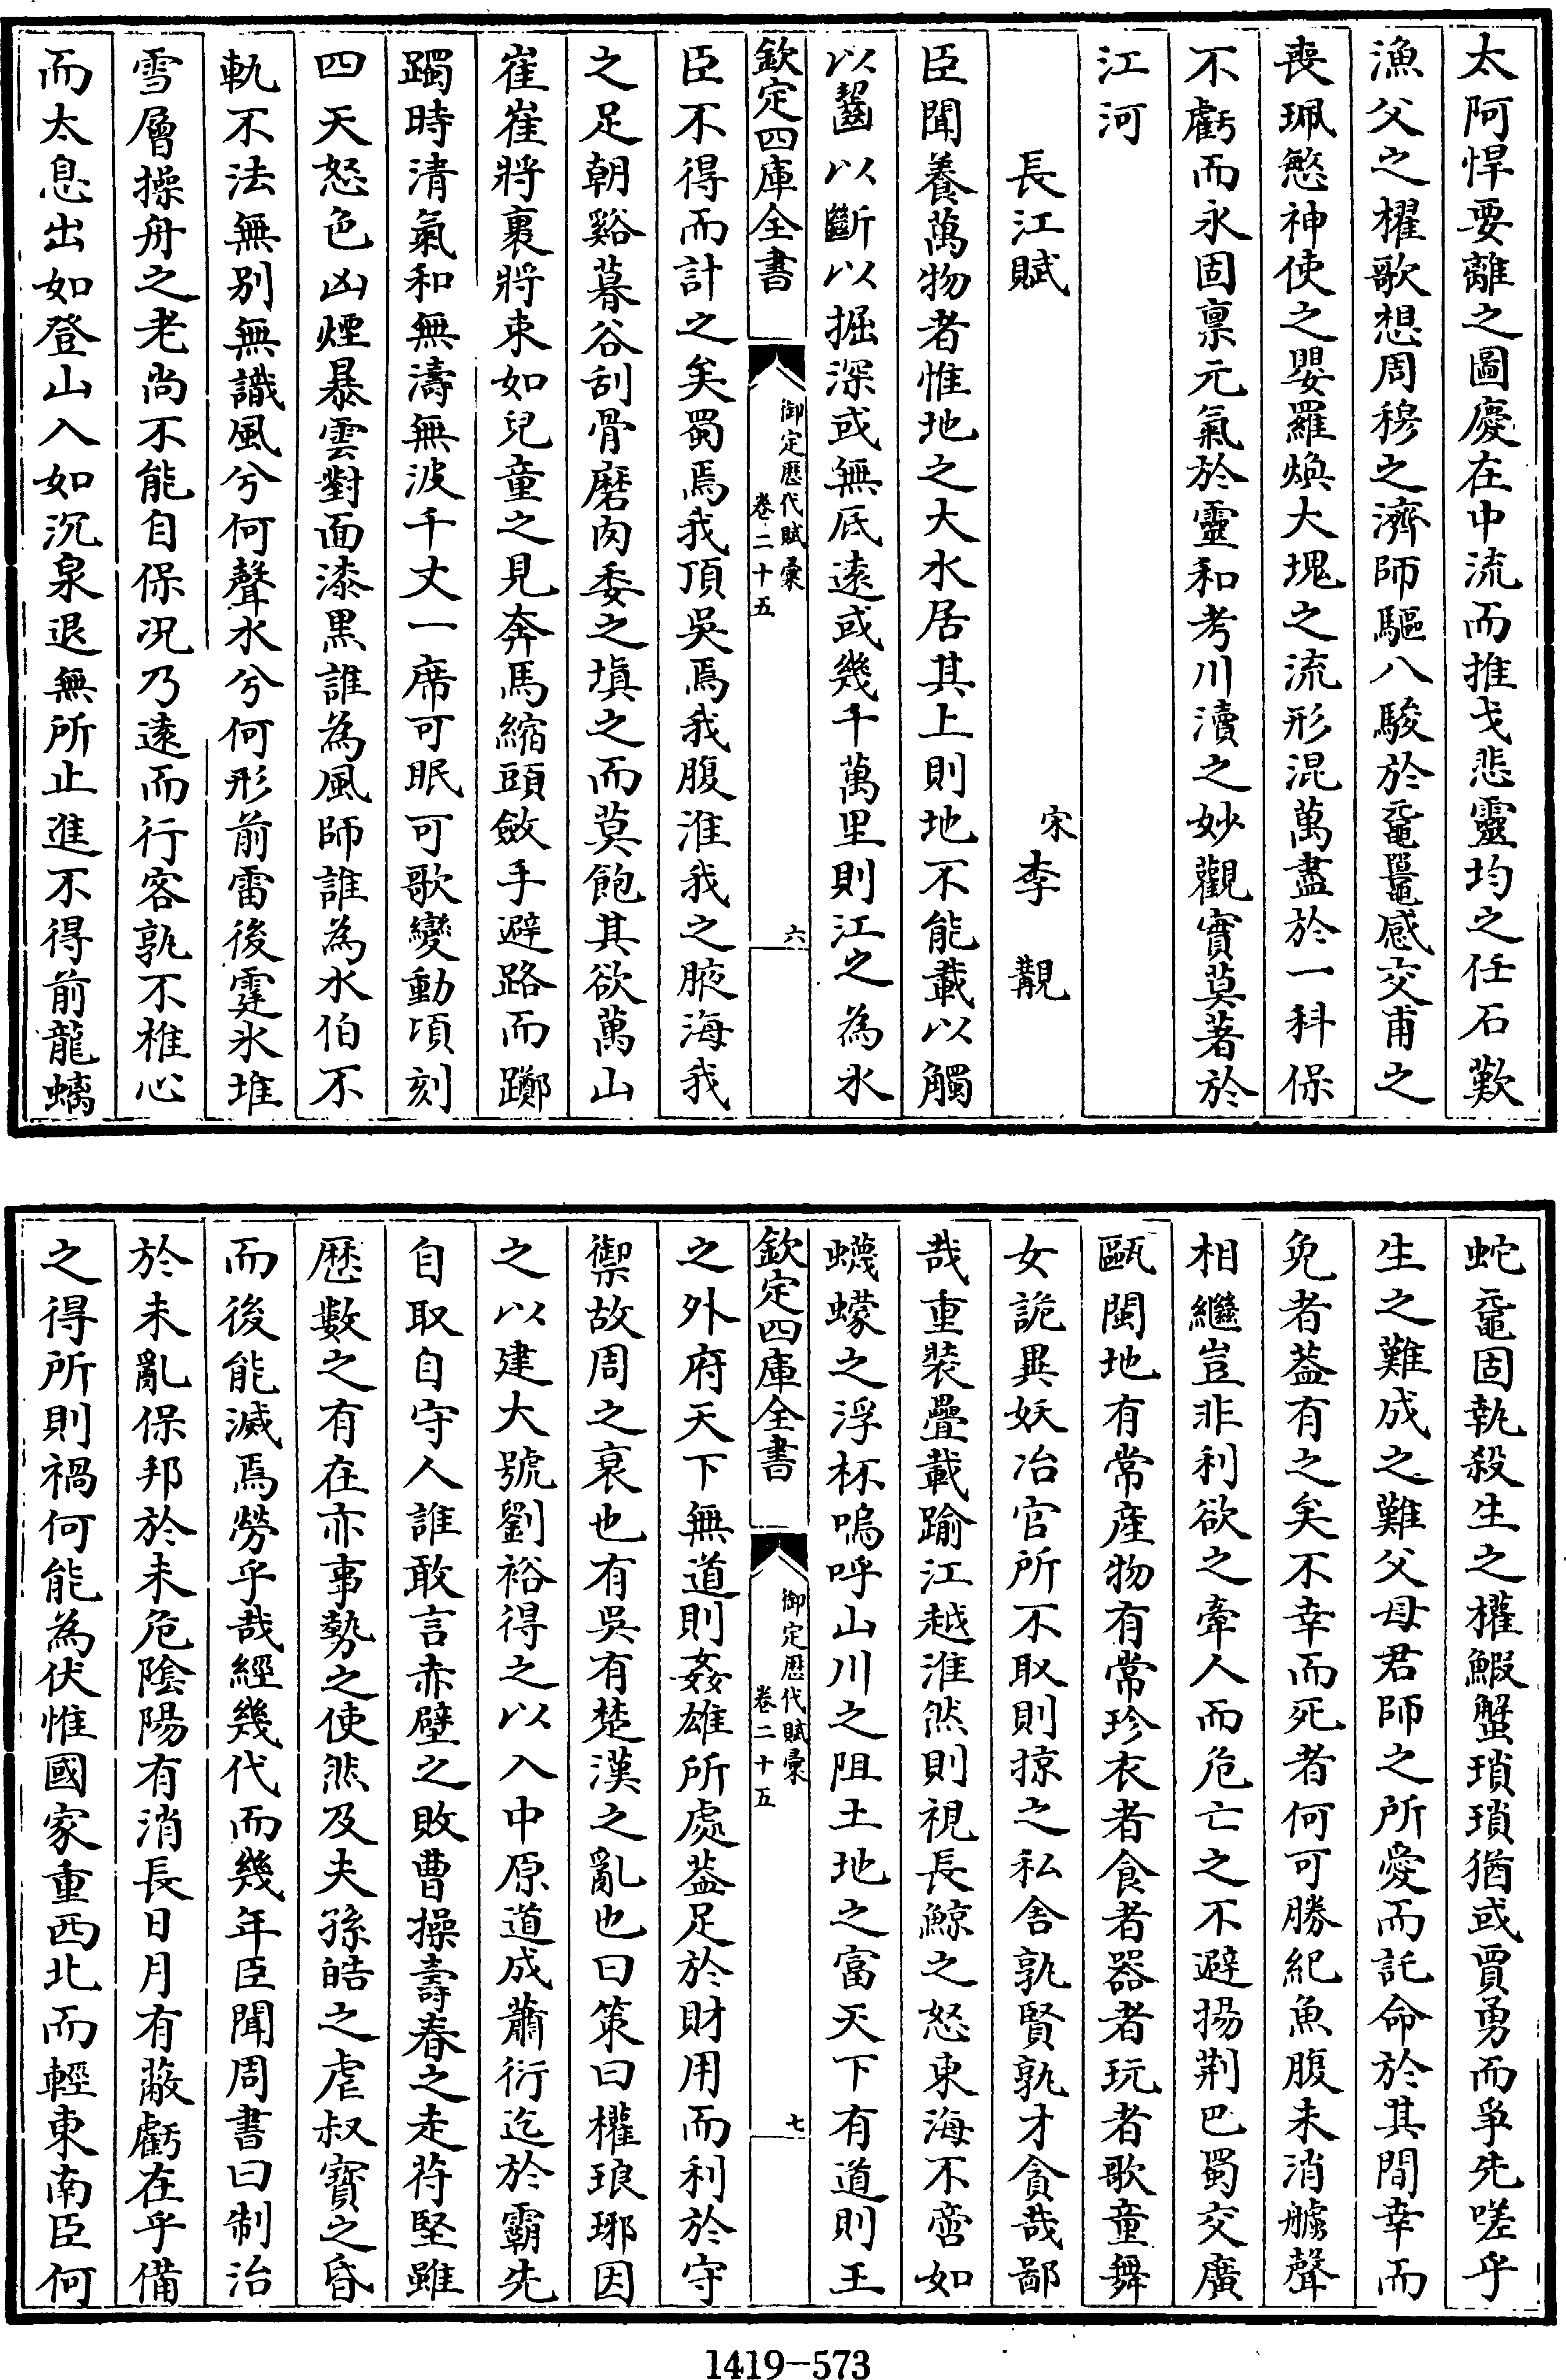 太阿悍要離之圖慶在中流而推戈悲靈均之任石歎
漁父之櫂歌想周穆之濟師驅八駿於黿鼉感交甫之
喪珮愍神使之嬰羅煥大塊之流形混萬盡於一科保
不虧而永固稟元氣於靈和考川瀆之妙觀實莫著於
江河
長江賦
宋李覯
臣聞養萬物者惟地之大水居其上則地不能載以觸
以齧以斷以掘深或無底遠或幾千萬里則江之為水
欽定四庫全書
御定歷代賦彙
卷二十五
六
臣不得而計之矣蜀焉我頂吳焉我腹淮我之腋海我
之足朝谿暮谷刮骨磨肉委之填之而莫飽其欲萬山
崔崔將裹將束如兒童之見奔馬縮頭斂手避路而躑
躅時清氣和無濤無波千丈一席可眠可歌變動頃刻
四天怒色凶煙暴雲對面漆黑誰為風師誰為水伯不
軌不法無別無識風兮何聲水兮何形前雷後霆氷堆
雪層操舟之老尚不能自保况乃遠而行客孰不椎心
而太息出如登山入如沉泉退無所止進不得前龍螭
蛇黿固執殺生之權鰕蟹瑣瑣猶或賈勇而爭先嗟乎
生之難成之難父母君師之所愛而託命於其間幸而
免者葢有之矣不幸而死者何可勝紀魚腹未消艣聲
相繼豈非利欲之牽人而危亡之不避揚荆巴蜀交廣
甌閩地有常產物有常珍衣者食者器者玩者歌童舞
女詭異妖冶官所不取則掠之私舍孰賢孰才貪哉鄙
哉重裝疊載踰江越淮然則視長鯨之怒東海不啻如
蠛蠓之浮杯嗚呼山川之阻土地之富天下有道則王
欽定四庫全書
御定歷代賦彙
卷二十五
七
之外府天下無道則姦雄所處葢足於財用而利於守
禦故周之衰也有吳有楚漢之亂也曰策曰權琅琊因
之以建大號劉裕得之以入中原道成蕭衍迄於霸先
自取自守人誰敢言赤壁之敗曹操壽春之走苻堅雖
歷數之有在亦事勢之使然及夫孫皓之虐叔寶之昏
而後能滅焉勞乎哉經幾代而幾年臣聞周書曰制治
於未亂保邦於未危陰陽有消長日月有蔽虧在乎備
之得所則禍何能為伏惟國家重西北而輕東南臣何
1419-573